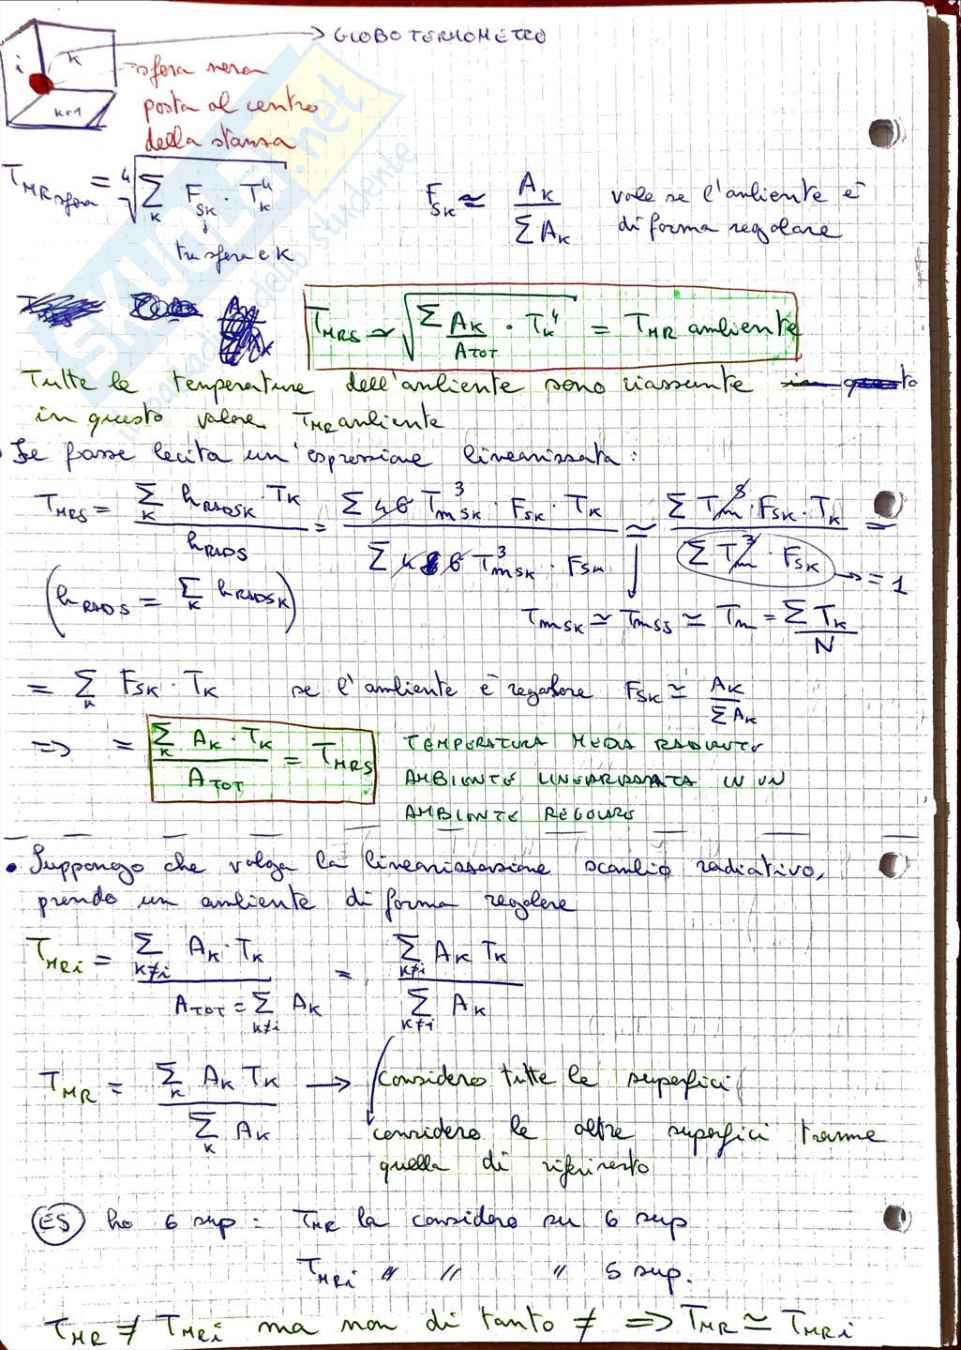 → GLOBOTERMOMETRO
i K
K+1
sfera nera
posta al centro
della stanza
T_MR sfera = ⁴√(Σ_K F_SK · T_K⁴)
tra sfera e K
F_SK ≃ A_K / ΣA_K vale se l'ambiente è
di forma regolare
T_MRS ≃ √(Σ A_K/A_TOT · T_K⁴) = T_MR ambiente
Tutte le temperature dell'ambiente sono riassunte
in questo valore T_MR ambiente
Se fosse lecita un'espressione linearizzata:
T_MRS = Σ_K h_RADSK · T_K / h_RADS = Σ 4σ T³_mSK · F_SK · T_K / Σ 4σ T³_mSK · F_SK ≃ Σ T_m³ · F_SK · T_K / Σ T_m³ · F_SK =
→ = 1
(h_RADS = Σ_K h_RADSK)
T_mSK ≃ T_mSS ≃ T_m = ΣT_K / N
= Σ_K F_SK · T_K se l'ambiente è regolare F_SK ≃ A_K / ΣA_K
⇒ = Σ_K A_K · T_K / A_TOT = T_MRS
TEMPERATURA MEDIA RADIANTE
AMBIENTE LINEARIZZATA IN UN
AMBIENTE REGOLARE
• Suppongo che valga la linearizzazione scambio radiativo,
prendo un ambiente di forma regolare
T_MRi = Σ_K≠i A_K · T_K / A_TOT = Σ_K≠i A_K = Σ_K≠i A_K T_K / Σ_K≠i A_K
T_MR = Σ_K A_K T_K / Σ_K A_K → considero tutte le superfici
considero le altre superfici tranne
quella di riferimento
ES ho 6 sup: T_MR la considero su 6 sup
T_MRi " " " 5 sup.
T_MR ≠ T_MRi ma non di tanto ≠ ⇒ T_MR ≃ T_MRi